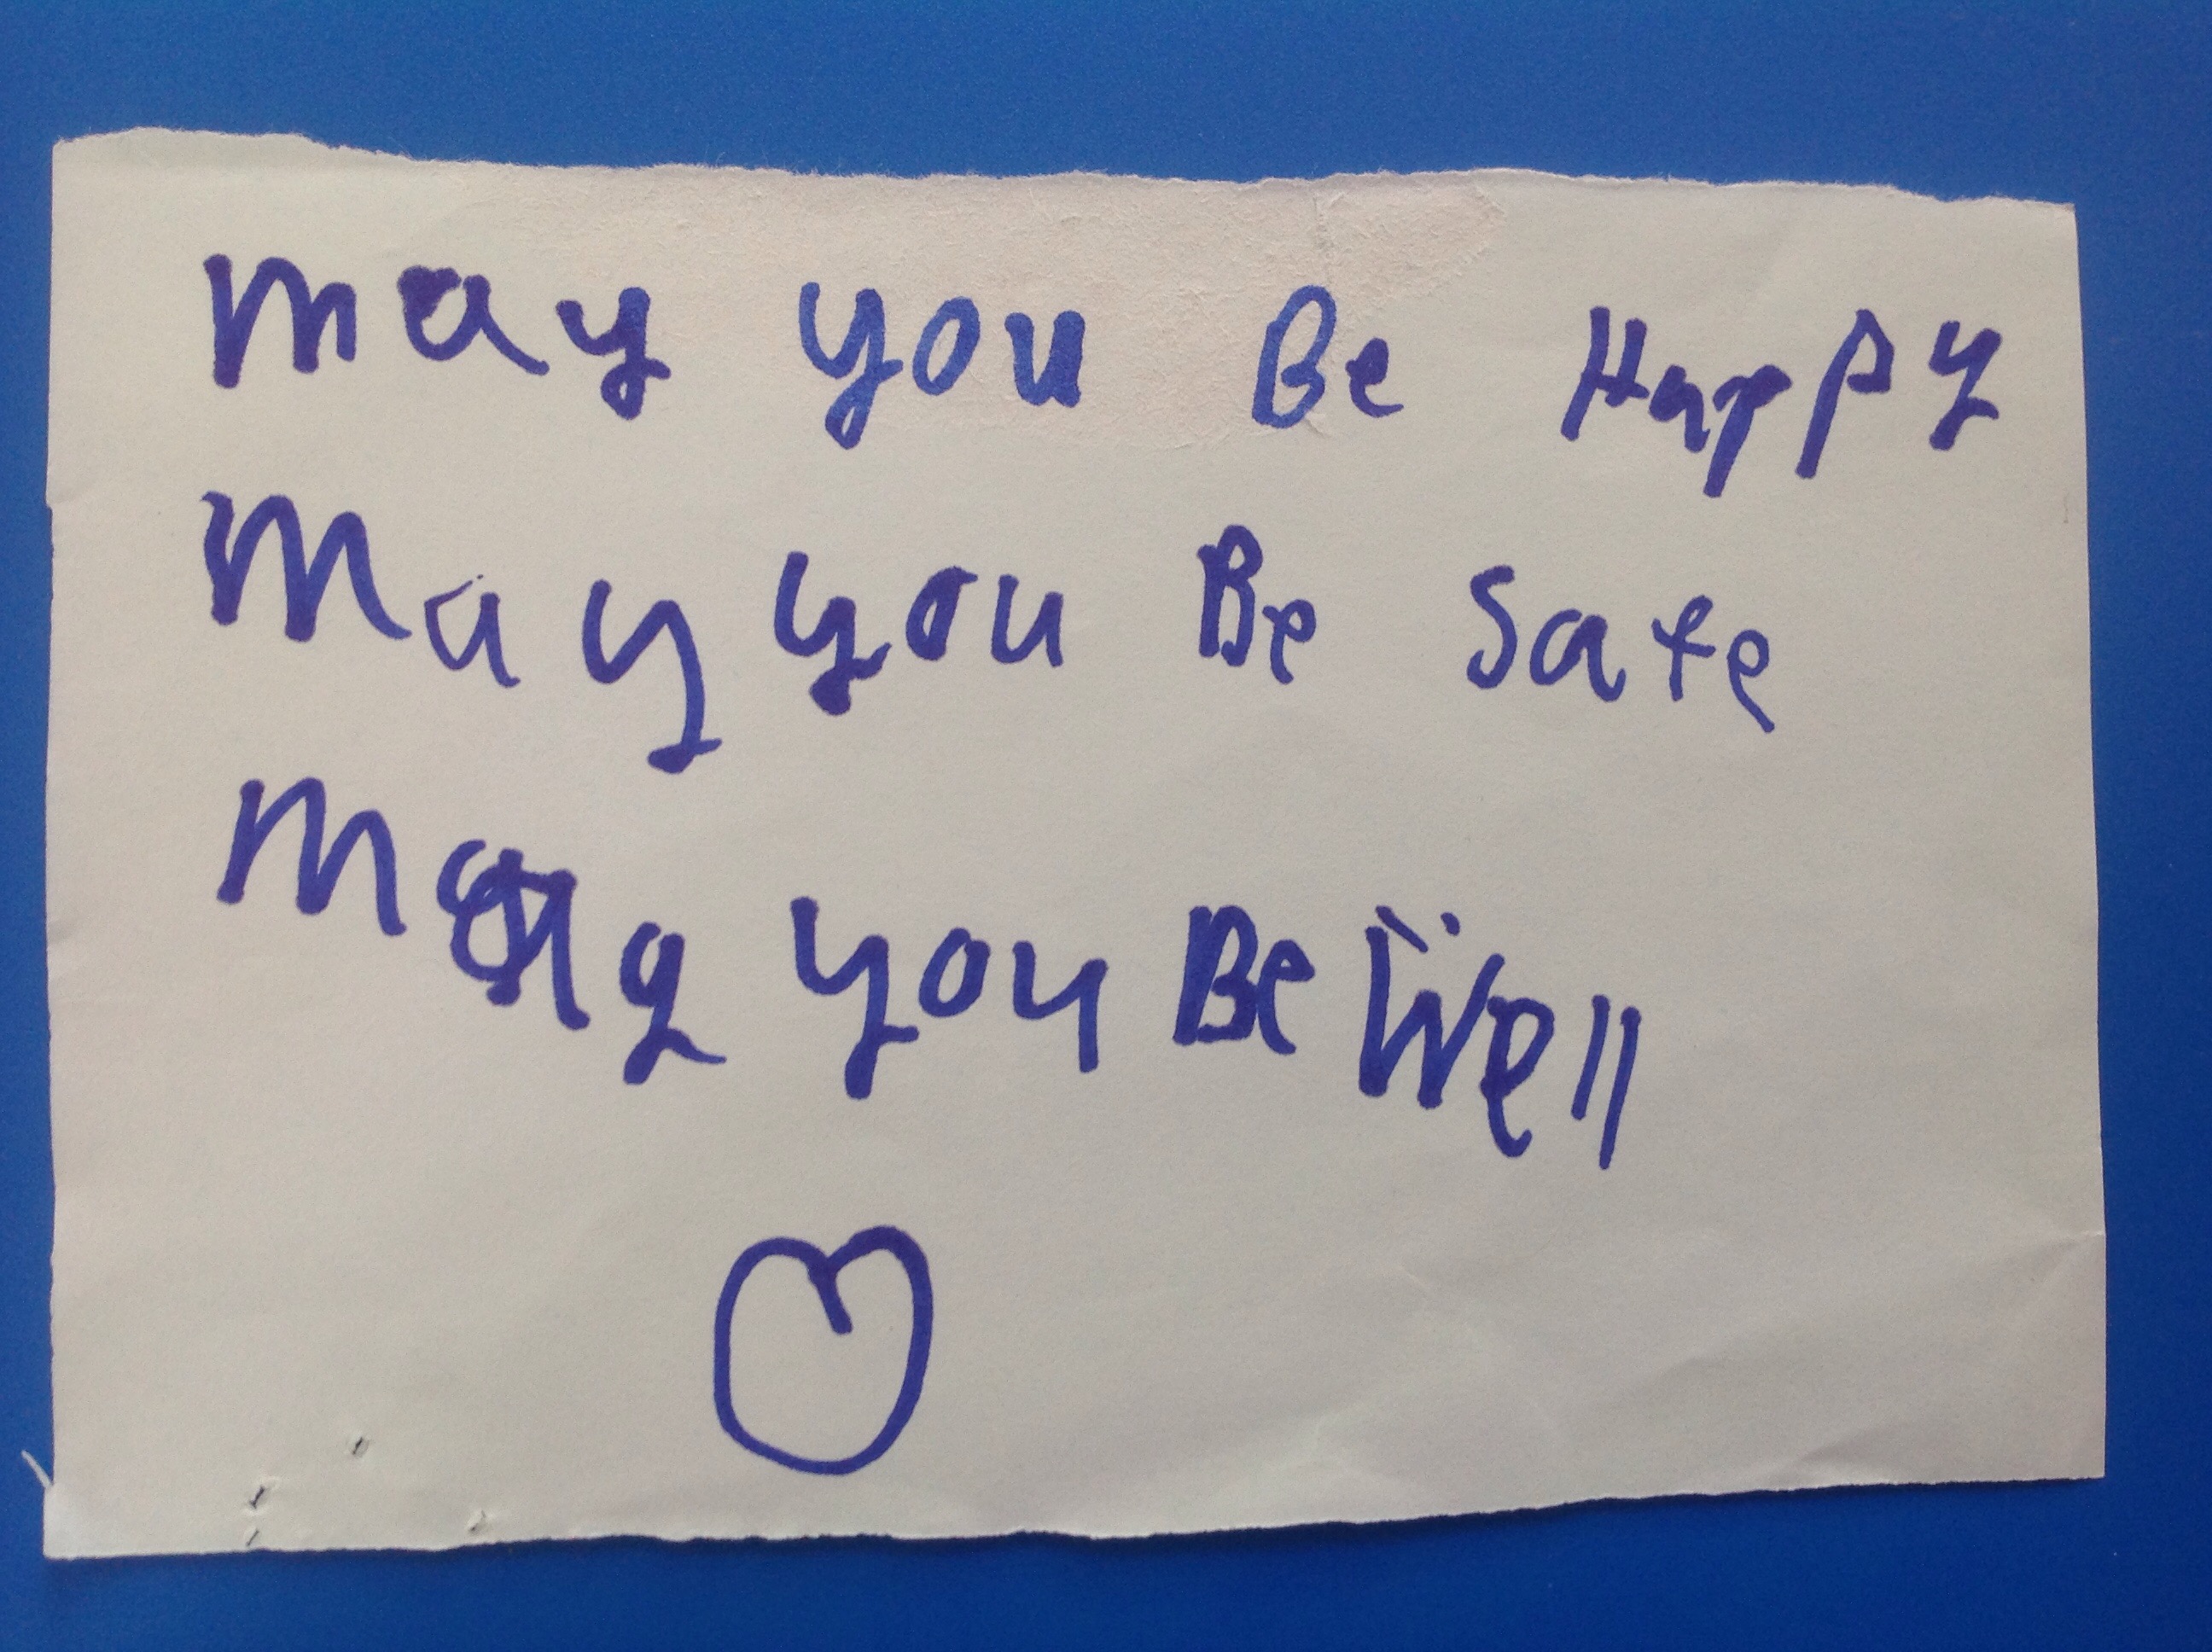 May you Be Happy
May you Be Safe
May you Be Well